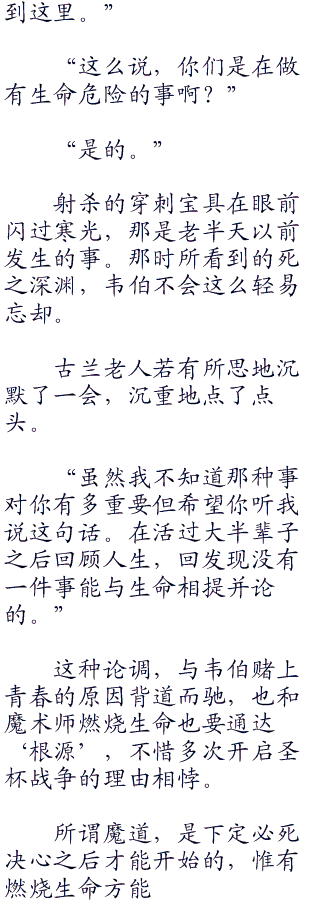 到这里。”
“这么说，你们是在做
有生命危险的事啊？”
“是的。”
射杀的穿刺宝具在眼前
闪过寒光，那是老半天以前
发生的事。那时所看到的死
之深渊，韦伯不会这么轻易
忘却。
古兰老人若有所思地沉
默了一会，沉重地点了点
头。
“虽然我不知道那种事
对你有多重要但希望你听我
说这句话。在活过大半辈子
之后回顾人生，回发现没有
一件事能与生命相提并论
的。”
这种论调，与韦伯赌上
青春的原因背道而驰，也和
魔术师燃烧生命也要通达
‘根源’，不惜多次开启圣
杯战争的理由相悖。
所谓魔道，是下定必死
决心之后才能开始的，惟有
燃烧生命方能